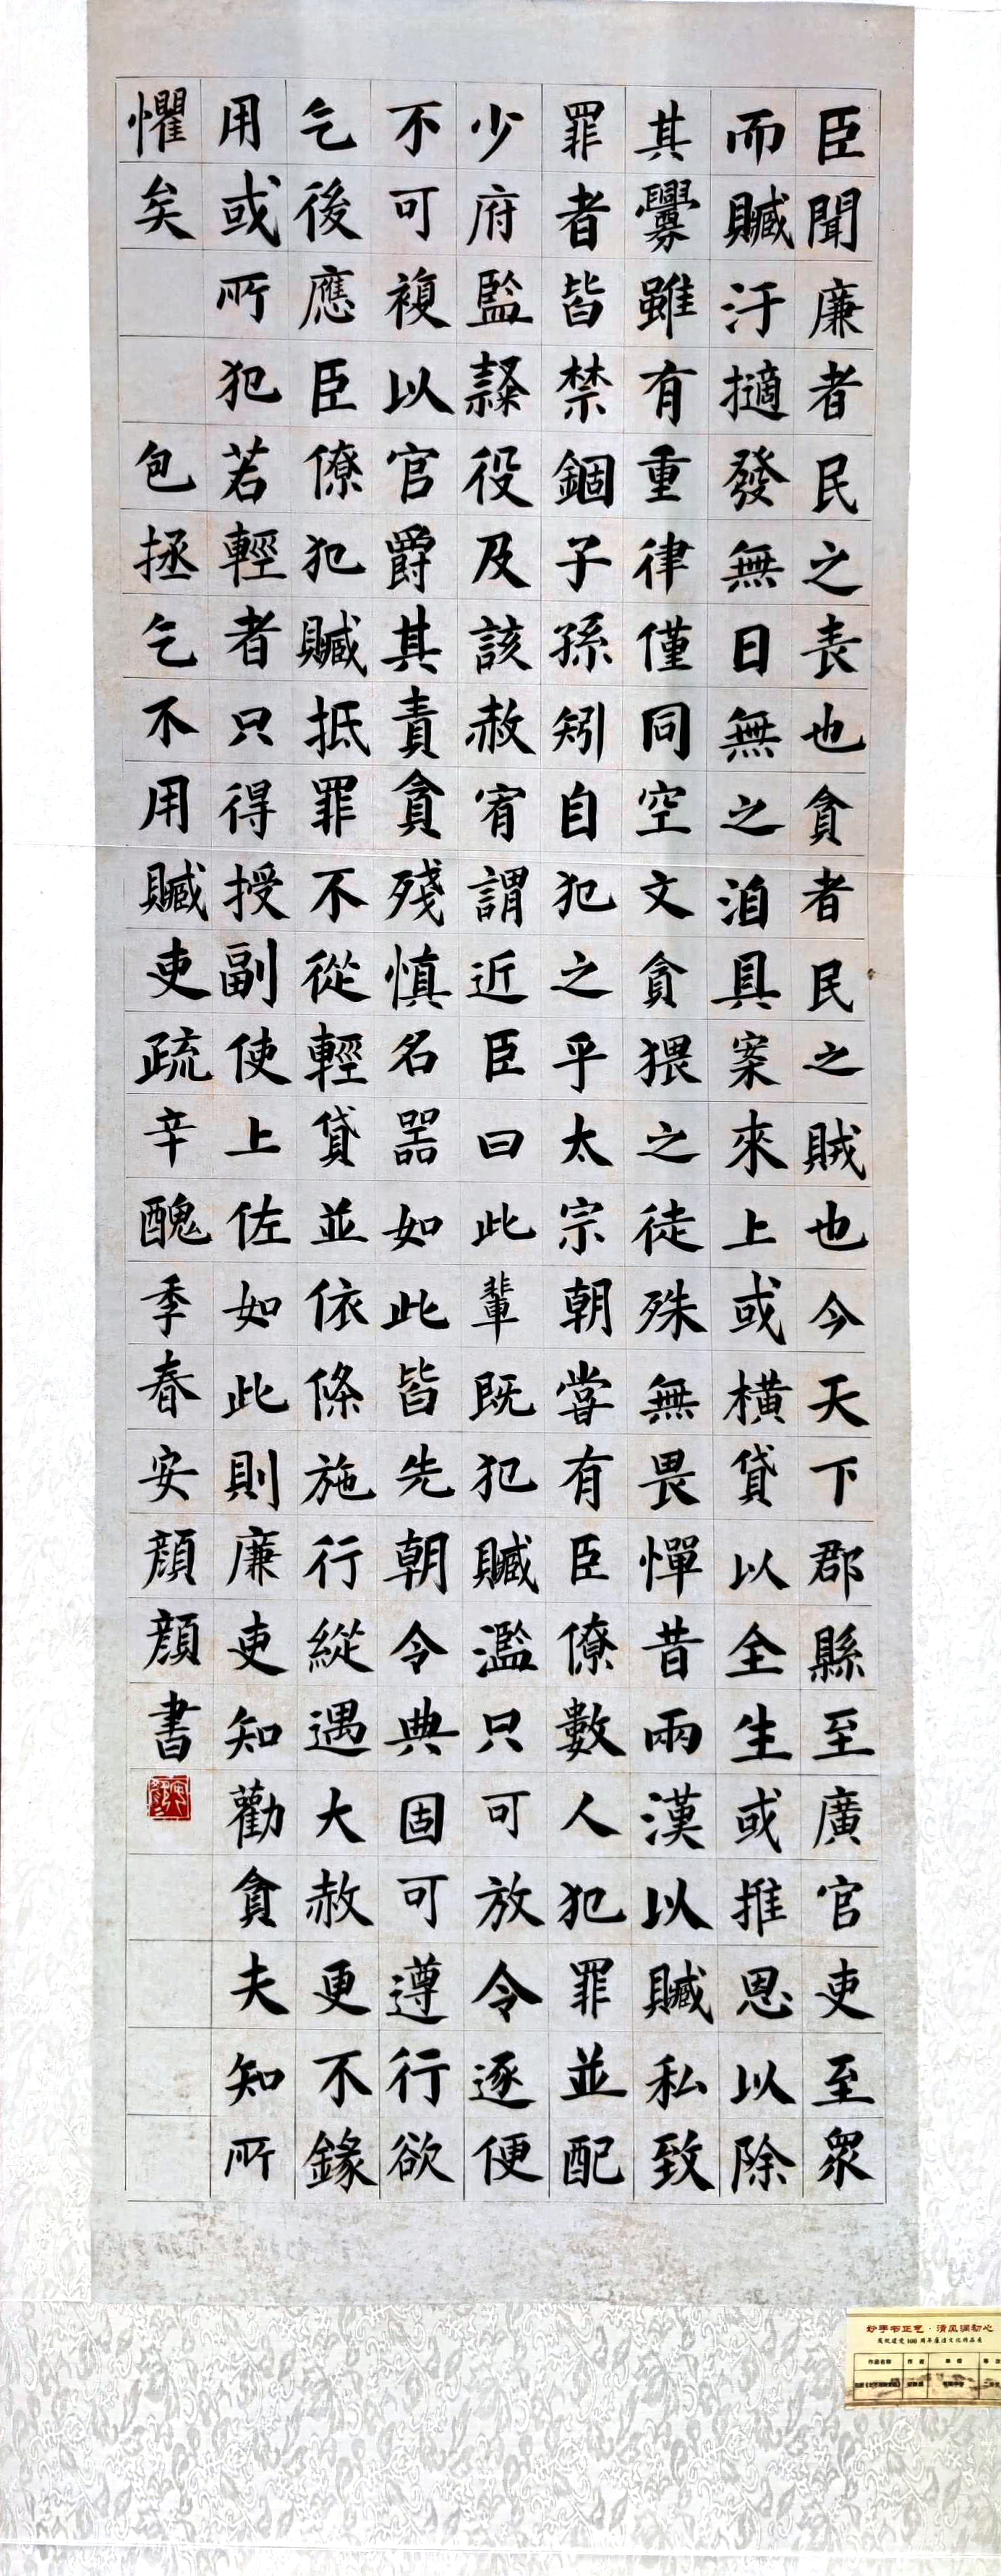 臣聞廉者民之表也貪者民之賊也今天下郡縣至廣官吏至衆
而贓汙擿發無日無之洎具案來上或橫貸以全生或推恩以除
其釁雖有重律僅同空文貪猥之徒殊無畏憚昔兩漢以贓私致
罪者皆禁錮子孫矧自犯之乎太宗朝嘗有臣僚數人犯罪並配
少府監隸役及該赦宥謂近臣曰此輩既犯贓濫只可放令逐便
不可複以官爵其責貪殘慎名器如此皆先朝令典固可遵行欲
乞後應臣僚犯贓抵罪不從輕貸並依條施行縱遇大赦更不錄
用或所犯若輕者只得授副使上佐如此則廉吏知勸貪夫知所
懼矣
包拯乞不用贓吏疏辛醜季春安顏顏書
妙手书正气·清风润初心
庆祝建党100周年廉洁文化作品展
作品名称 作者 单位